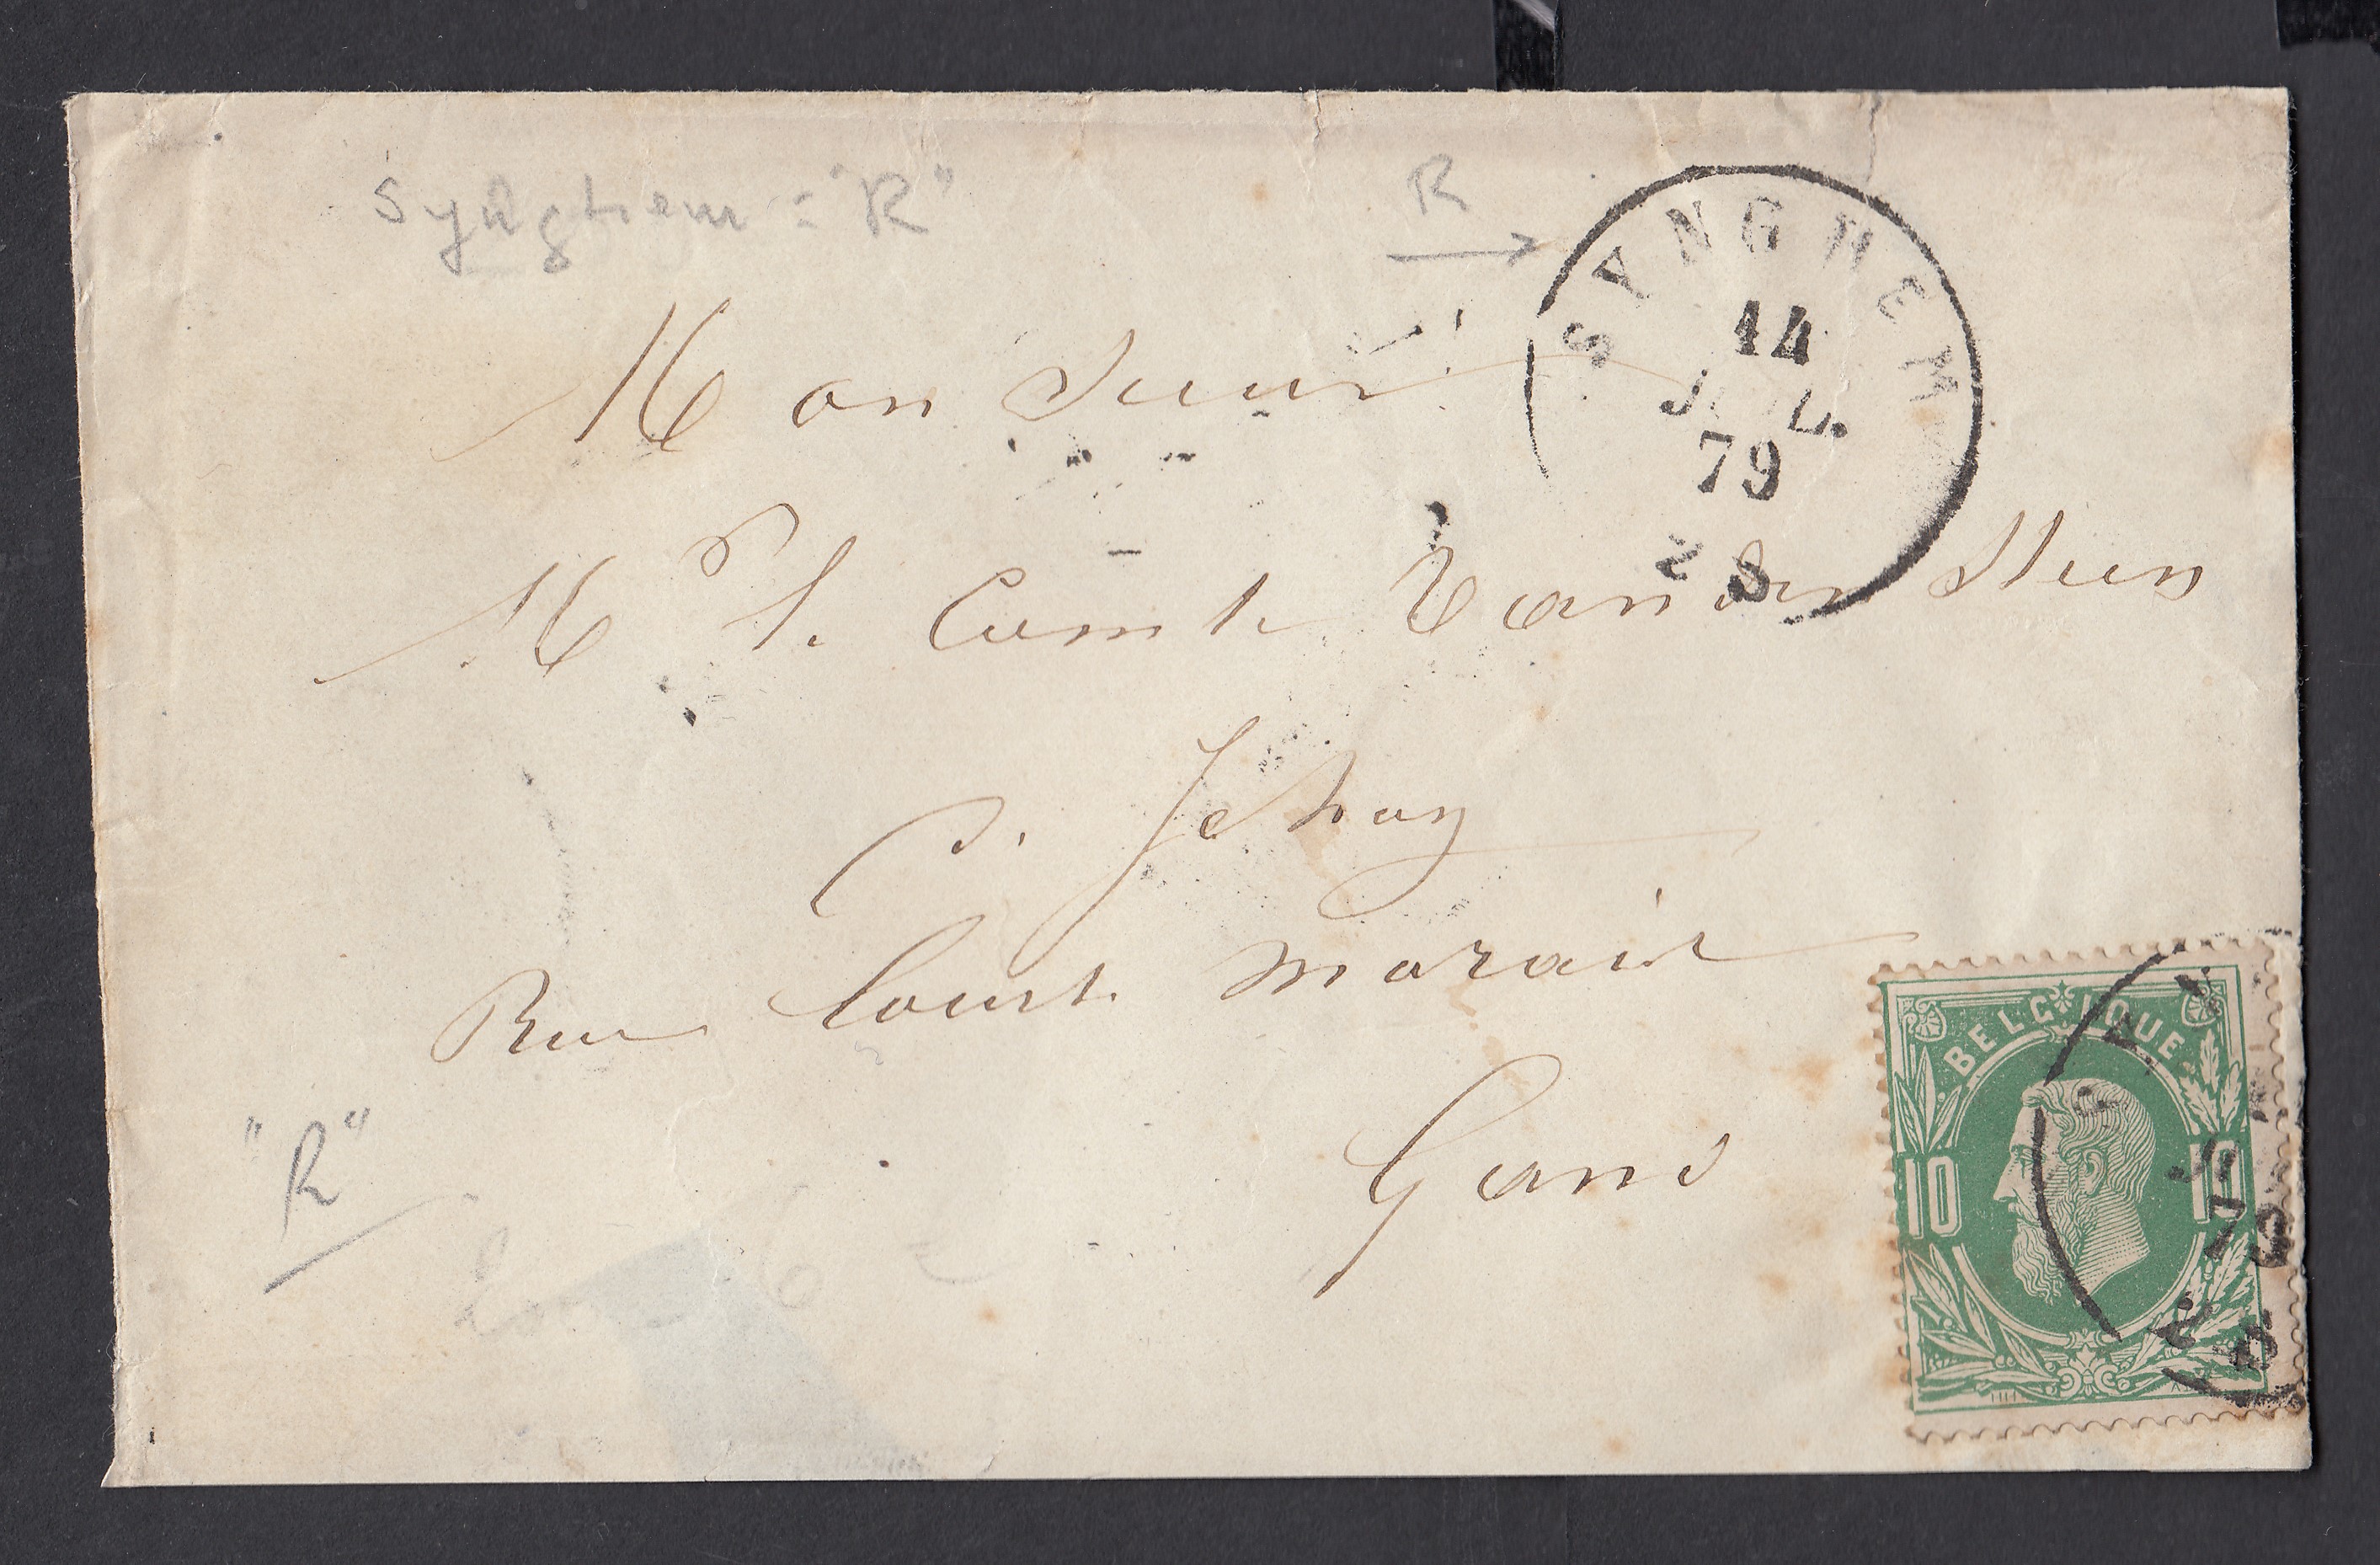 Synghem = "R"
R
SYNGHEM
14
JUIL.
79
2 S
Monsieur
Mr le Comte Vander Steen
d. Jehay
Rue Courte Marais
Gand
"R"
BELGIQUE
10 10